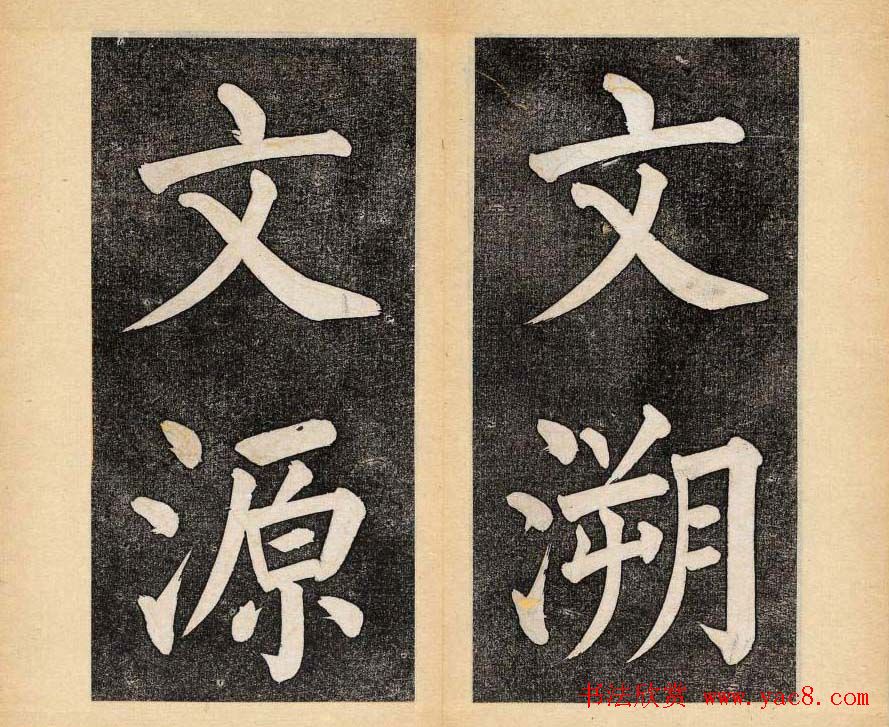 文溯
文源
书法欣赏 www.yac8.com